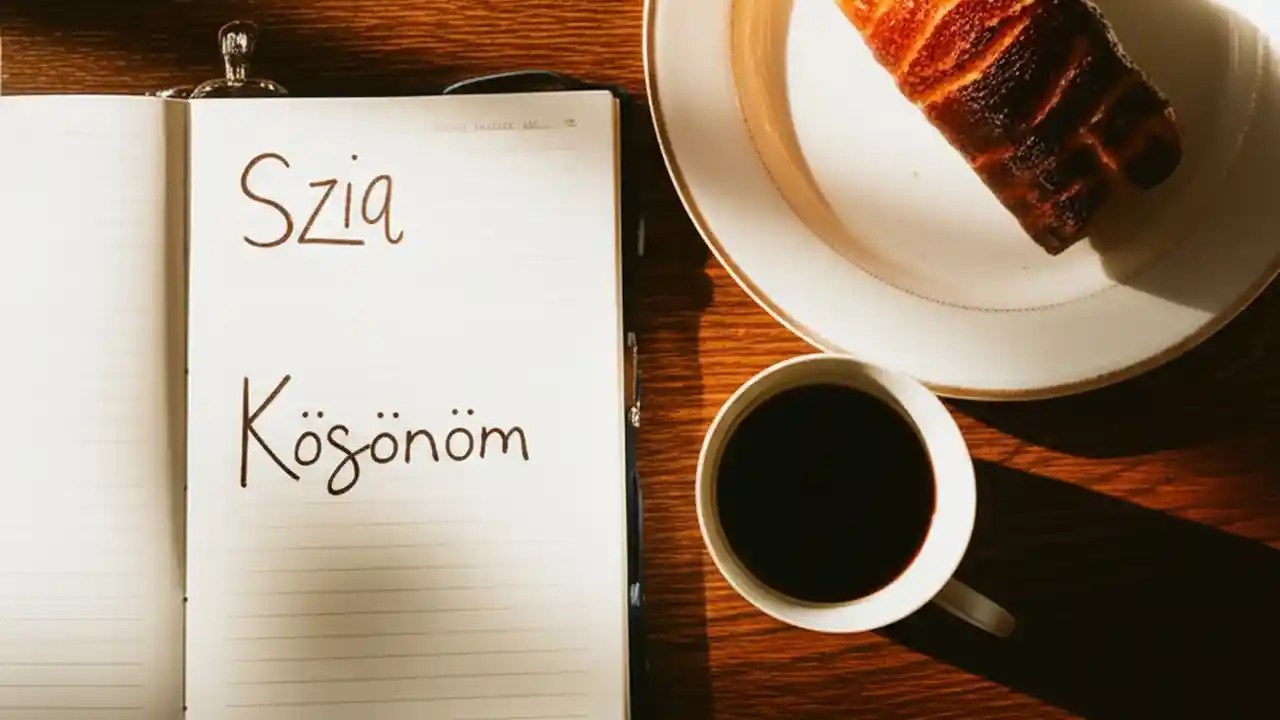 Szia
Kösönöm